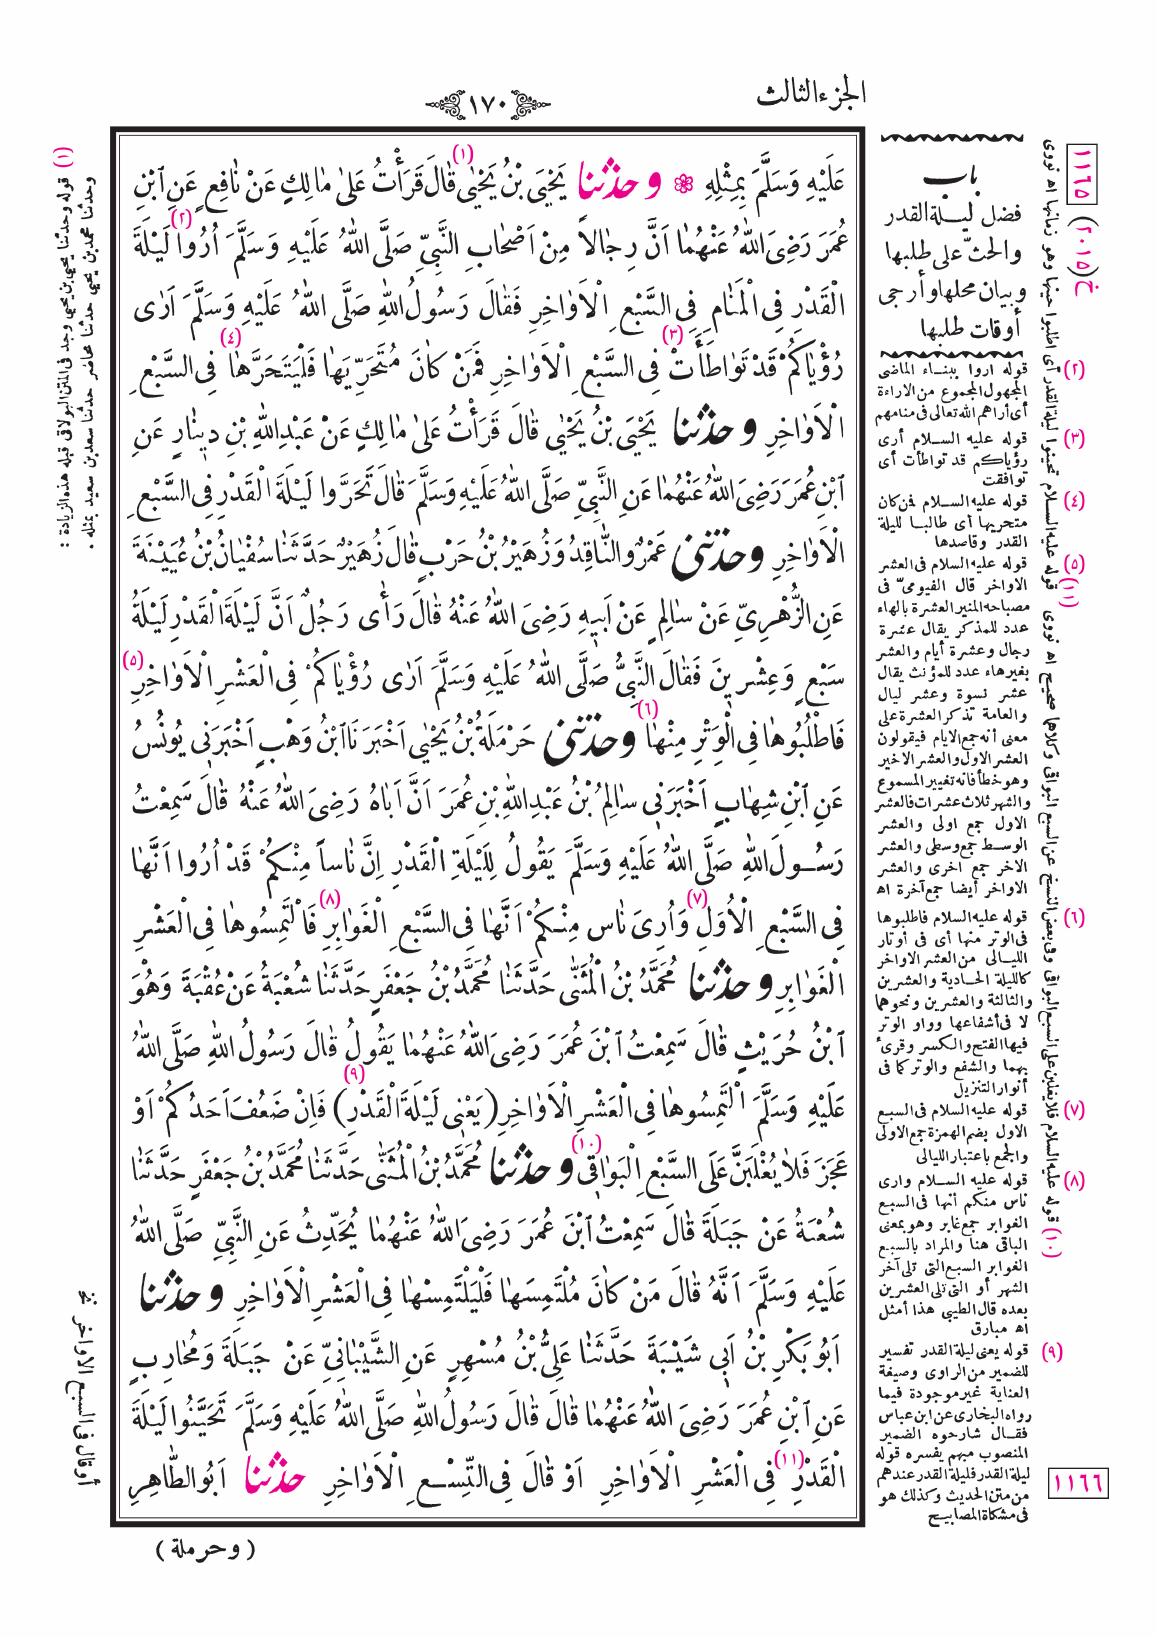 الجزء الثالث
١٧٠
عَلَيْهِ وَسَلَّمَ بِمِثْلِهِ ❀ وحَدَّثَنَا يَحْيَى بْنُ يَحْيٰى (١) قَالَ قَرَأْتُ عَلٰى مَالِكٍ عَنْ نَافِعٍ عَنِ ابْنِ
عُمَرَ رَضِىَ اللهُ عَنْهُمَا اَنَّ رِجَالاً مِنْ اَصْحَابِ النَّبِىِّ صَلَّى اللهُ عَلَيْهِ وَسَلَّمَ اُرُوا (٢) لَيْلَةَ
الْقَدْرِ فِى الْمَنَامِ فِى السَّبْعِ الْاَوَاخِرِ فَقَالَ رَسُولُ اللهِ صَلَّى اللهُ عَلَيْهِ وَسَلَّمَ اَرٰى
رُؤْيَاكُمْ قَدْ تَوَاطَأَتْ (٣) فِى السَّبْعِ الْاَوَاخِرِ فَمَنْ كَانَ مُتَحَرِّيَهَا (٤) فَلْيَتَحَرَّهَا فِى السَّبْعِ
الْاَوَاخِرِ وحَدَّثَنَا يَحْيَى بْنُ يَحْيٰى قَالَ قَرَأْتُ عَلٰى مَالِكٍ عَنْ عَبْدِ اللهِ بْنِ دِينَارٍ عَنِ
ابْنِ عُمَرَ رَضِىَ اللهُ عَنْهُمَا عَنِ النَّبِىِّ صَلَّى اللهُ عَلَيْهِ وَسَلَّمَ قَالَ تَحَرَّوْا لَيْلَةَ الْقَدْرِ فِى السَّبْعِ
الْاَوَاخِرِ وحَدَّثَنِى عَمْرٌو النَّاقِدُ وَزُهَيْرُ بْنُ حَرْبٍ قَالَ زُهَيْرٌ حَدَّثَنَا سُفْيَانُ بْنُ عُيَيْنَةَ
عَنِ الزُّهْرِىِّ عَنْ سَالِمٍ عَنْ اَبِيهِ رَضِىَ اللهُ عَنْهُ قَالَ رَأَى رَجُلٌ اَنَّ لَيْلَةَ الْقَدْرِ لَيْلَةُ
سَبْعٍ وَعِشْرِينَ فَقَالَ النَّبِىُّ صَلَّى اللهُ عَلَيْهِ وَسَلَّمَ اَرٰى رُؤْيَاكُمْ فِى الْعَشْرِ الْاَوَاخِرِ (٥)
فَاطْلُبُوهَا فِى الْوَتْرِ مِنْهَا (٦) وحَدَّثَنِى حَرْمَلَةُ بْنُ يَحْيٰى اَخْبَرَنَا ابْنُ وَهْبٍ اَخْبَرَنِى يُونُسُ
عَنِ ابْنِ شِهَابٍ اَخْبَرَنِى سَالِمُ بْنُ عَبْدِ اللهِ بْنِ عُمَرَ اَنَّ اَبَاهُ رَضِىَ اللهُ عَنْهُ قَالَ سَمِعْتُ
رَسُولَ اللهِ صَلَّى اللهُ عَلَيْهِ وَسَلَّمَ يَقُولُ لِلَيْلَةِ الْقَدْرِ اِنَّ نَاساً مِنْكُمْ قَدْ اُرُوا اَنَّهَا
فِى السَّبْعِ الْاُوَلِ (٧) وَاُرِىَ نَاسٌ مِنْكُمْ اَنَّهَا فِى السَّبْعِ الْغَوَابِرِ (٨) فَالْتَمِسُوهَا فِى الْعَشْرِ
الْغَوَابِرِ وحَدَّثَنَا مُحَمَّدُ بْنُ الْمُثَنّٰى حَدَّثَنَا مُحَمَّدُ بْنُ جَعْفَرٍ حَدَّثَنَا شُعْبَةُ عَنْ عُقْبَةَ وَهُوَ
ابْنُ حُرَيْثٍ قَالَ سَمِعْتُ ابْنَ عُمَرَ رَضِىَ اللهُ عَنْهُمَا يَقُولُ قَالَ رَسُولُ اللهِ صَلَّى اللهُ
عَلَيْهِ وَسَلَّمَ اَلْتَمِسُوهَا فِى الْعَشْرِ الْاَوَاخِرِ (يَعْنِى لَيْلَةَ الْقَدْرِ) (٩) فَاِنْ ضَعُفَ اَحَدُكُمْ اَوْ
عَجَزَ فَلَا يُغْلَبَنَّ عَلَى السَّبْعِ الْبَوَاقِى (١٠) وحَدَّثَنَا مُحَمَّدُ بْنُ الْمُثَنّٰى حَدَّثَنَا مُحَمَّدُ بْنُ جَعْفَرٍ حَدَّثَنَا
شُعْبَةُ عَنْ جَبَلَةَ قَالَ سَمِعْتُ ابْنَ عُمَرَ رَضِىَ اللهُ عَنْهُمَا يُحَدِّثُ عَنِ النَّبِىِّ صَلَّى اللهُ
عَلَيْهِ وَسَلَّمَ اَنَّهُ قَالَ مَنْ كَانَ مُلْتَمِسَهَا فَلْيَلْتَمِسْهَا فِى الْعَشْرِ الْاَوَاخِرِ وحَدَّثَنَا
اَبُو بَكْرِ بْنُ اَبِى شَيْبَةَ حَدَّثَنَا عَلِىُّ بْنُ مُسْهِرٍ عَنِ الشَّيْبَانِىِّ عَنْ جَبَلَةَ وَمُحَارِبٍ
عَنِ ابْنِ عُمَرَ رَضِىَ اللهُ عَنْهُمَا قَالَ قَالَ رَسُولُ اللهِ صَلَّى اللهُ عَلَيْهِ وَسَلَّمَ تَحَيَّنُوا لَيْلَةَ
الْقَدْرِ (١١) فِى الْعَشْرِ الْاَوَاخِرِ اَوْ قَالَ فِى التِّسْعِ الْاَوَاخِرِ حَدَّثَنَا اَبُو الطَّاهِرِ
( وحرملة )
باب
فضل ليلة القدر
والحث على طلبها
وبيان محلها وأرجى
أوقات طلبها
(٢) قوله اروا ببناء الماضى
المجهول المجموع من الاراءة
أى أراهم الله تعالى فى منامهم
(٣) قوله عليه السلام أرى
رؤياكم قد تواطأت أى
توافقت
(٤) قوله عليه السلام فمن كان
متحريها أى طالبا لليلة
القدر وقاصدها
(٥) قوله عليه السلام فى العشر
الاواخر قال الفيومىّ فى
مصباحه المنير العشرة بالهاء
عدد للمذكر يقال عشرة
رجال وعشرة أيام والعشر
بغير هاء عدد للمؤنث يقال
عشر نسوة وعشر ليال
والعامة تذكر العشرة على
معنى أنه جمع الايام فيقولون
العشر الاول والعشر الاخير
وهو خطأ فانه تغيير المسموع
والشهر ثلاث عشرات فالعشر
الاول جمع اولى والعشر
الوسط جمع وسطى والعشر
الاخر جمع اخرى والعشر
الاواخر أيضا جمع آخرة اه
(٦) قوله عليه السلام فاطلبوها
فى الوتر منها أى فى أوتار
الليالى من العشر الاواخر
كالليلة الحادية والعشرين
والثالثة والعشرين ونحوهما
لا فى أشفاعها وواو الوتر
فيها الفتح والكسر وقرئ
بهما والشفع والوتر كما فى
أنوار التنزيل
(٧) قوله عليه السلام فى السبع
الاول بضم الهمزة جمع الاولى
والجمع باعتبار الليالى
(٨) قوله عليه السلام وارى
ناس منكم أنها فى السبع
الغوابر جمع غابر وهو بمعنى
الباقى هنا والمراد بالسبع
الغوابر السبع التى تلى آخر
الشهر أو التى تلى العشرين
بعده قال الطيبى هذا أمثل
اه مبارق
(٩) قوله يعنى ليلة القدر تفسير
للضمير من الراوى وصيغة
العناية غير موجودة فيما
رواه البخارى عن ابن عباس
فقال شارحوه الضمير
المنصوب مبهم يفسره قوله
ليلة القدر فليلة القدر عندهم
من متن الحديث وكذلك هو
فى مشكاة المصابيح
١١٦٥
خ(٢٠١٥)
(١٠) قوله عليه السلام فلا يغلبن على السبع البواقى وفى بعض النسخ عن السبع البواقى وكلاهما صحيح اه نووى
(١١) قوله عليه السلام تحينوا ليلة القدر أى اطلبوا حينها وهو زمانها اه نووى
١١٦٦
(١) قوله وحدثنا يحيى بن يحيى وجد فى المتن البولاقى قبله هذه الزيادة :
وحدثنا محمد بن يحيى حدثنا محاضر حدثنا سعد بن سعيد بمثله .
أو قال فى السبع الاواخر نخ